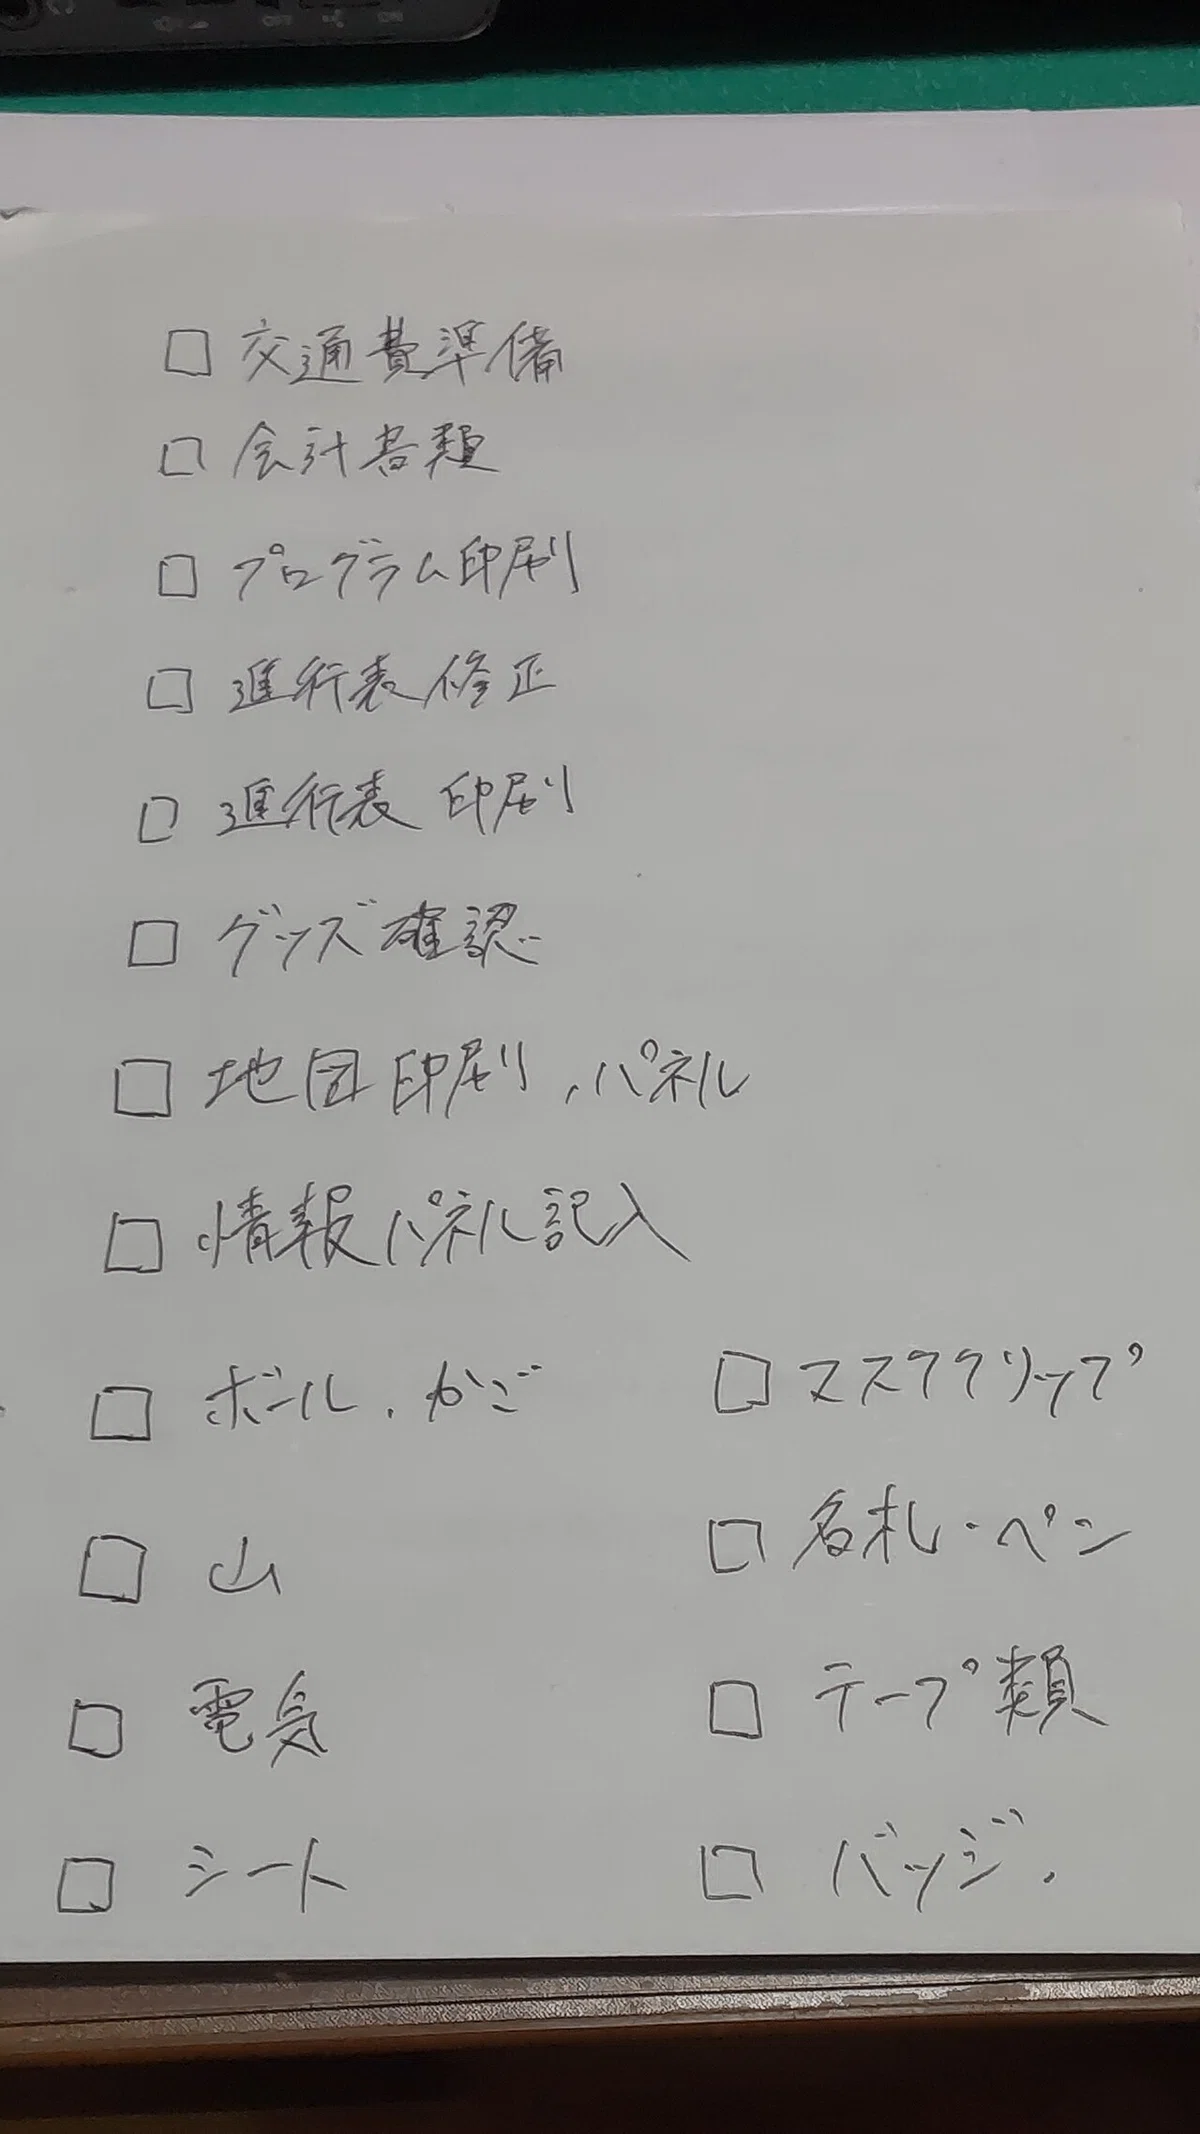 □ 交通費準備
□ 会計書類
□ プログラム印刷
□ 進行表修正
□ 進行表 印刷
□ グッズ確認
□ 地図印刷、パネル
□ 情報パネル記入
□ ボール、かご
□ 山
□ 電気
□ シート
□ マスククリップ
□ 名札・ペン
□ テープ類
□ バッジ.